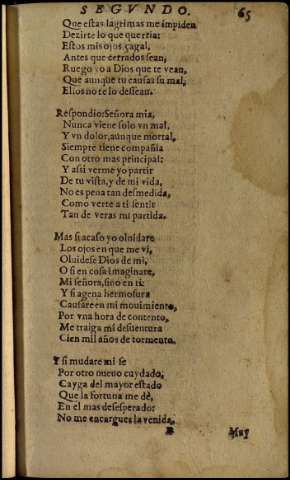 SEGVNDO.
65
Que estas lagrimas me impiden
Dezirte lo que querria:
Estos mis ojos çagal,
Antes que cerrados sean,
Ruego yo a Dios que te vean,
Que aunque tu causas su mal,
Ellos no te lo dessean.
Respondio: Señora mia,
Nunca viene solo vn mal,
Y vn dolor, aunque mortal,
Siempre tiene compañia
Con otro mas principal:
Y assi verme yo partir
De tu vista, y de mi vida,
No es pena tan desmedida,
Como verte a ti sentir
Tan de veras mi partida.
Mas si acaso yo oluidare
Los ojos en que me vi,
Oluidese Dios de mi,
O si en cosa imaginare,
Mi señora, sino en ti:
Y si agena hermosura
Causare en mi mouimiento,
Por vna hora de contento,
Me traiga mi desuentura
Cien mil años de tormento.
Y si mudare mi fe
Por otro nueuo cuydado,
Cayga del mayor estado
Que la fortuna me dè,
En el mas desesperado
No me encargues la venida,
Muy